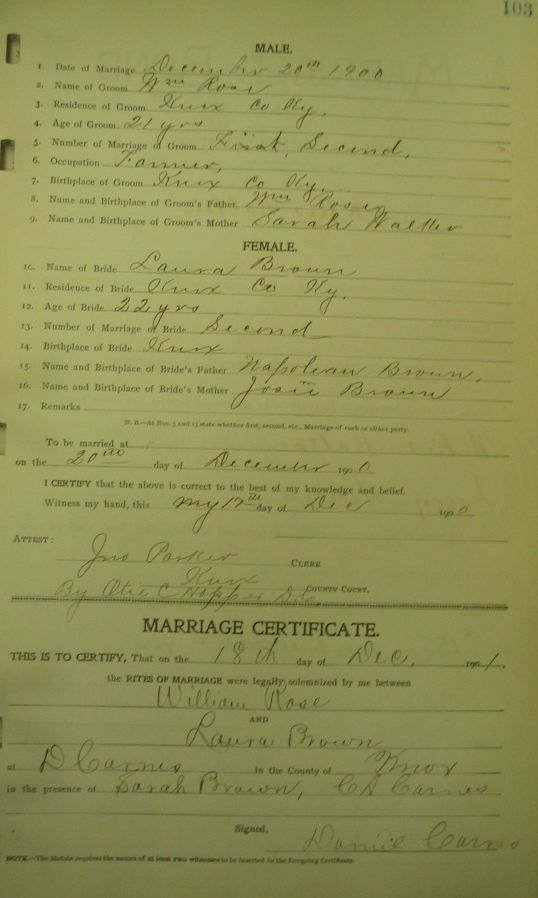 103
MALE.
1. Date of Marriage December 20th 1900
2. Name of Groom Wm Rose
3. Residence of Groom Knox Co Ky.
4. Age of Groom 21 yrs
5. Number of Marriage of Groom First, Second,
6. Occupation Farmer,
7. Birthplace of Groom Knox Co Ky,
8. Name and Birthplace of Groom's Father Wm Rose
9. Name and Birthplace of Groom's Mother Sarah Walker
FEMALE.
10. Name of Bride Laura Brown
11. Residence of Bride Knox Co Ky.
12. Age of Bride 22 yrs
13. Number of Marriage of Bride Second
14. Birthplace of Bride Knox
15. Name and Birthplace of Bride's Father Napolean Brown,
16. Name and Birthplace of Bride's Mother Josie Brown
17. Remarks
N. B.—At Nos. 5 and 13 state whether first, second, etc., Marriage of each or either party.
To be married at
on the 20th day of December 1900
I CERTIFY that the above is correct to the best of my knowledge and belief.
Witness my hand, this day of Dec 1900
ATTEST:
Jno Parker CLERK
Knox COUNTY COURT.
By C Hopper D.C.
MARRIAGE CERTIFICATE.
THIS IS TO CERTIFY, That on the 18th day of Dec. 1901.
the RITES OF MARRIAGE were legally solemnized by me between
William Rose
AND
Laura Brown
at D Carnes in the County of Knox
in the presence of Sarah Brown, Carnes
Signed, Carnes
NOTE.—The Statute requires the names of at least TWO witnesses to be inserted in the foregoing Certificate.